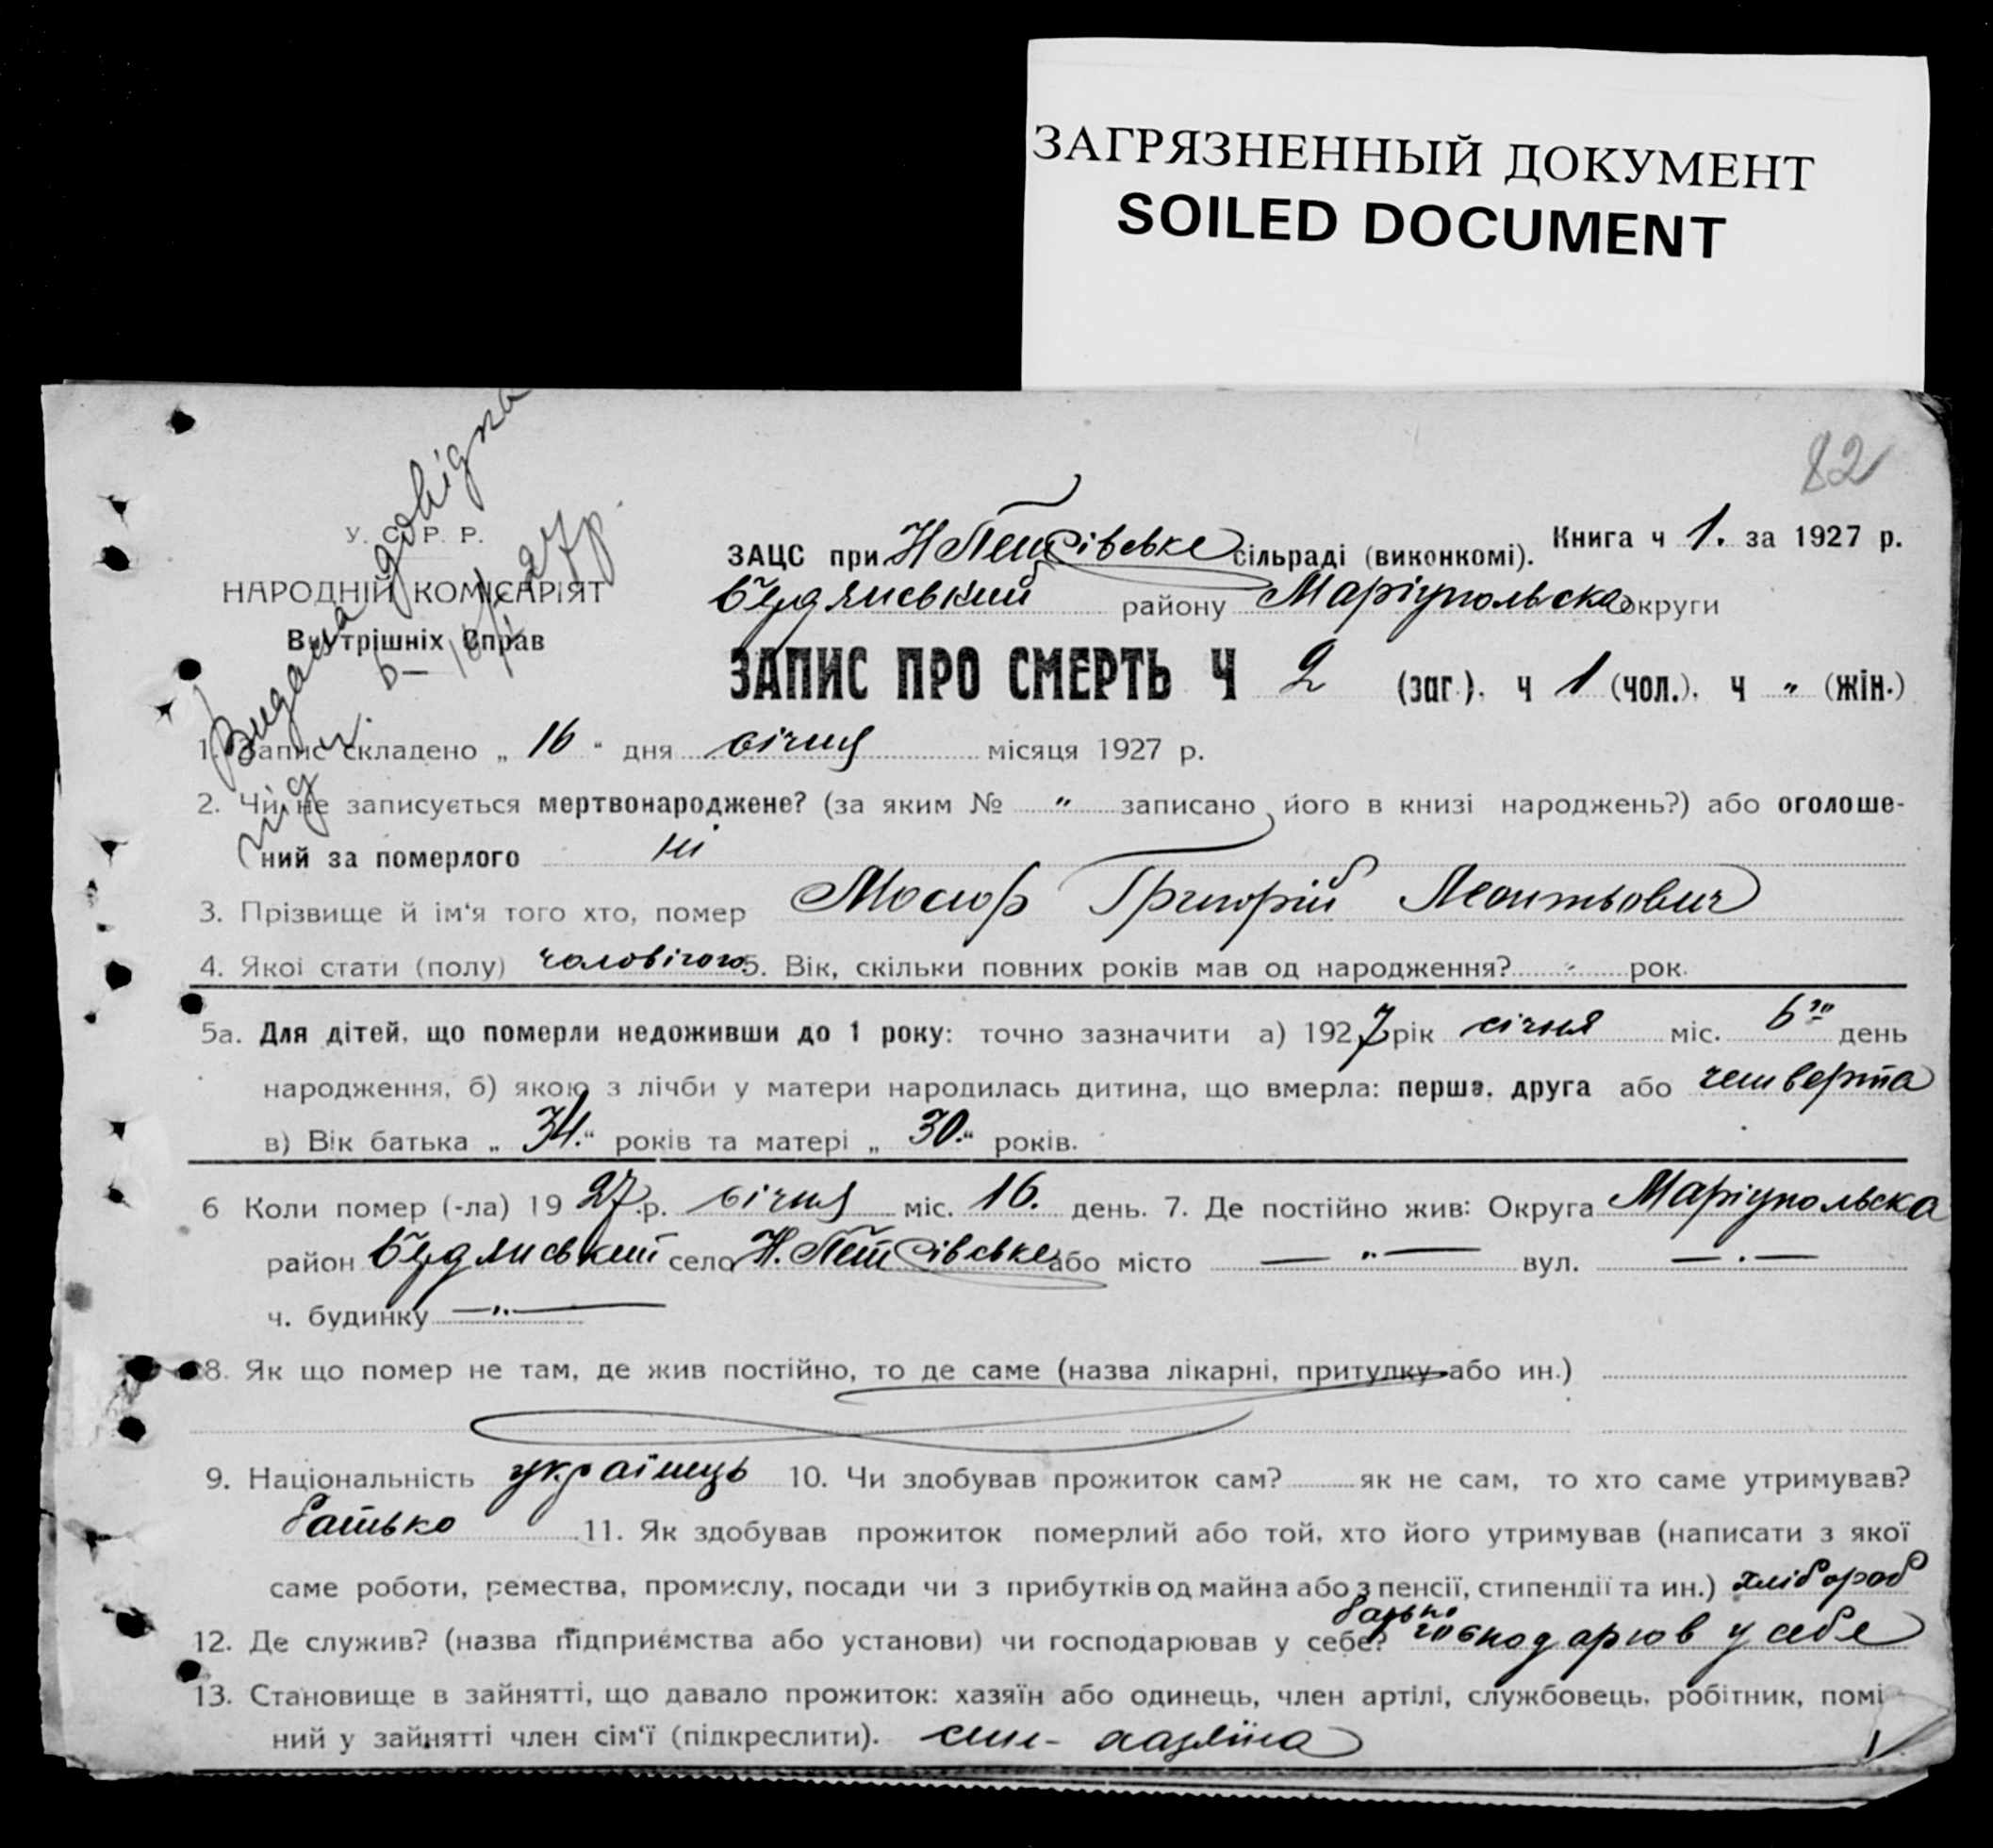 ЗАГРЯЗНЕННЫЙ ДОКУМЕНТ
SOILED DOCUMENT
82
Видана довідка
під ч. 6 – 16/I 27р.
У. С. Р. Р.
НАРОДНІЙ КОМІСАРІЯТ
Внутрішніх Справ
ЗАЦС при сільраді (виконкомі). Книга ч 1. за 1927 р.
Бердянський району Маріупольська округи
ЗАПИС ПРО СМЕРТЬ Ч 2 (заг.), ч 1 (чол.), ч „ (жін.)
1. Запис складено „ 16 “ дня січня місяця 1927 р.
2. Чи не записується мертвонароджене? (за яким № „ записано його в книзі народжень?) або оголоше-
ний за померлого ні
3. Прізвище й ім‘я того хто, помер Мосюр Григорій Леонтьович
4. Якої стати (полу) чоловічого 5. Вік, скільки повних років мав од народження? „ рок.
5а. Для дітей, що померли недоживши до 1 року: точно зазначити а) 1927 рік січня міс. 6го день
народження, б) якою з лічби у матери народилась дитина, що вмерла: перша, друга або четверта
в) Вік батька „ 34. “ років та матері „ 30. “ років.
6 Коли помер (-ла) 1927 р. січня міс. 16. день. 7. Де постійно жив: Округа Маріупольська
район Бердянський село або місто — „ — вул. — . —
ч. будинку — „ —
8. Як що помер не там, де жив постійно, то де саме (назва лікарні, притулку або ин.)
9. Національність українець 10. Чи здобував прожиток сам? як не сам, то хто саме утримував?
батько 11. Як здобував прожиток померлий або той, хто його утримував (написати з якої
саме роботи, ремества, промислу, посади чи з прибутків од майна або з пенсії, стипендії та ин.) хлібороб
12. Де служив? (назва підприємства або установи) чи господарював у себе? батько господарював у себе
13. Становище в зайнятті, що давало прожиток: хазяїн або одинець, член артілі, службовець, робітник, помі
ний у зайнятті член сім‘ї (підкреслити). син - хазяїна